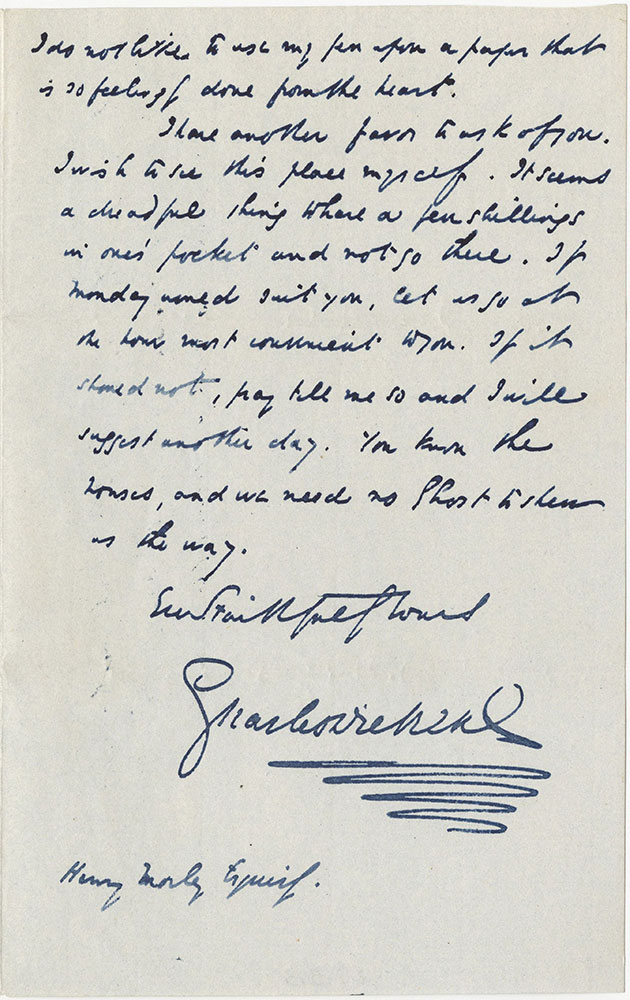 I do not like to use my pen upon a paper that
is so feelingly done from the heart.
I have another favor to ask of you.
I wish to see this place myself. It seems
a dreadful thing to have a few shillings
in one's pocket and not go there. If
Monday would suit you, let us go at
the hour most convenient to you. If it
should not, pray tell me so and I will
suggest another day. You know the
houses, and we need no Ghost to shew
us the way.
Ever Faithfully Yours
Charles Dickens
Henry Morley Esquire.